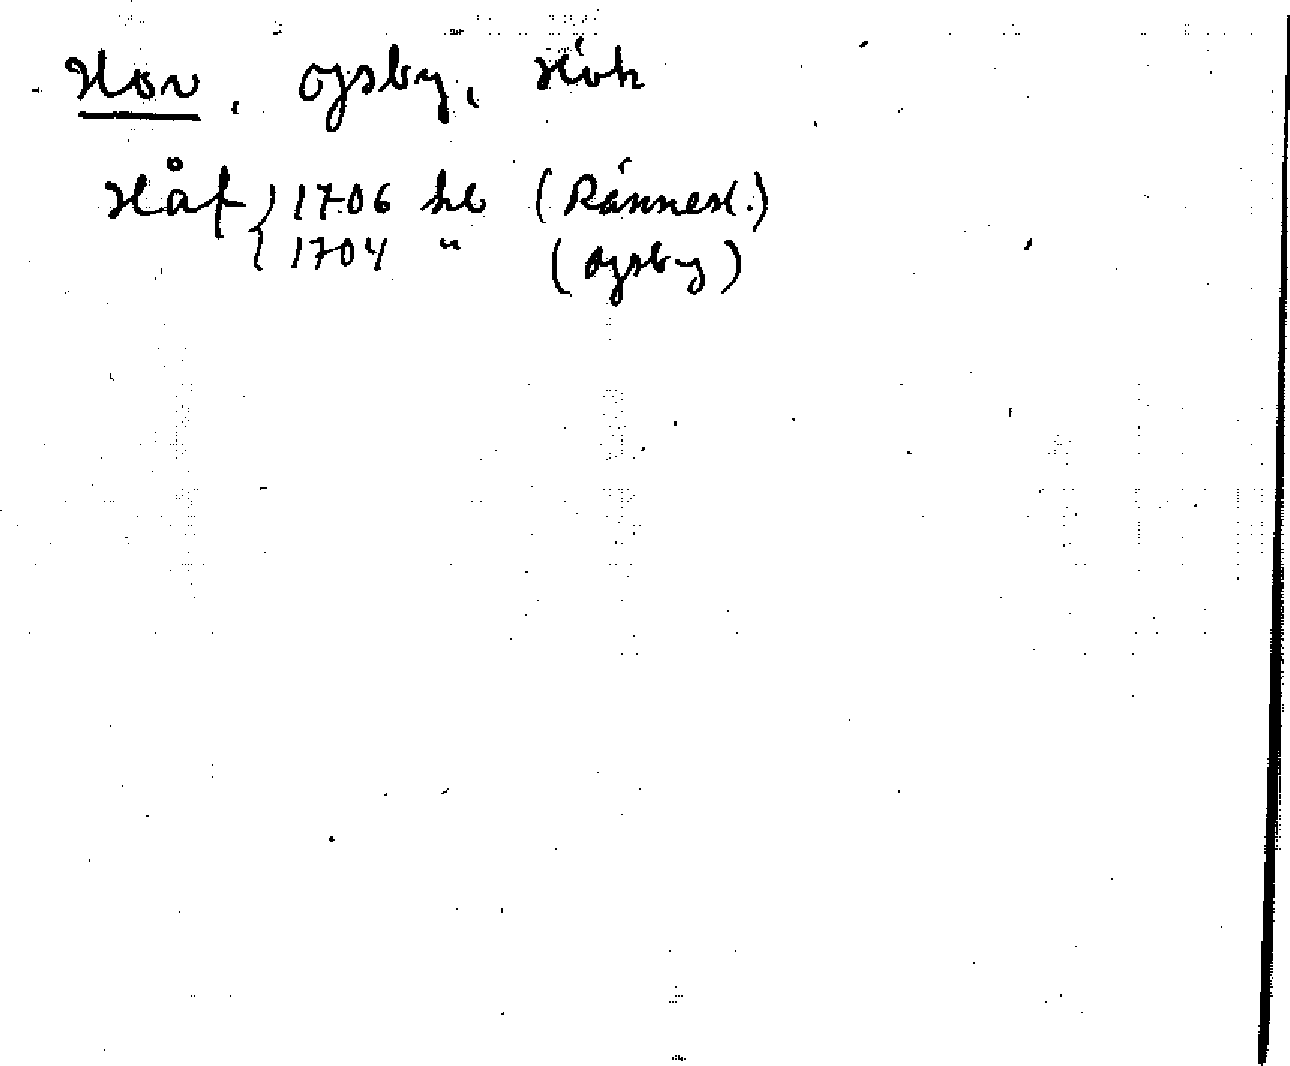 Hov, Ojsby, Hök
Håf } 1706 hb (Rännesl.)
{ 1704 " (Ojsby)